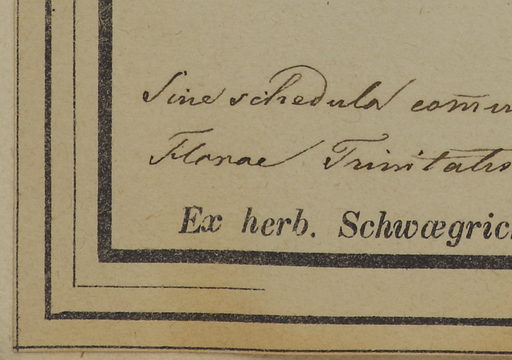 Sine schedula com̄u
Florae Trinitatis
Ex herb. Schwægric